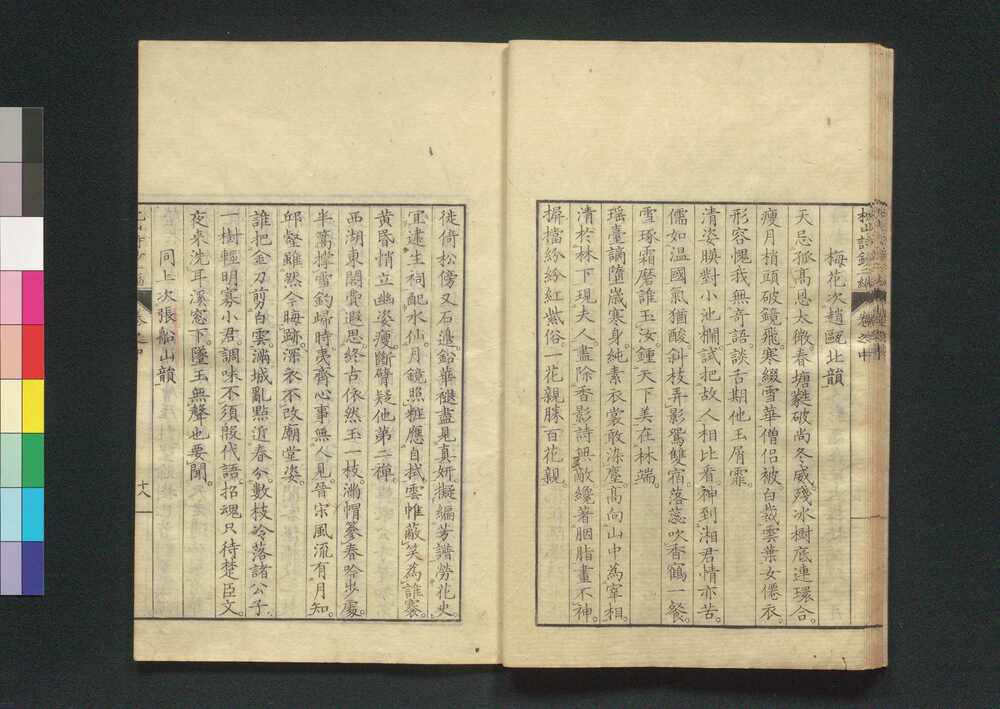 梅花次趙甌北韻
天忌孤高恩太微春塘蘸破尚冬威殘冰樹底連環合。
瘦月梢頭破鏡飛。寒綴雪華僧侶被白裁雲葉女僊衣。
形容愧我無奇語。談舌期他玉屑霏
清姿膜對小池欄試把故人相比看。神到湘君情亦苦。
儒如溫國氣猶酸斜枝弄影鴛雙宿落蕊吹香鶴一餐。
雪琢霜磨誰玉汝鍾天下美在林端。
瑶臺謫墮歲寒身。純素衣裳敢染塵高向山中為宰相。
清於林下現夫人盡除香影詩無敵纔著胭脂畫不神。
摒擋紛紛紅紫俗一花親勝百花親。
徙倚松傍又石邊。鉛華褪盡見真妍。擬編芳譜勞花史。
宜逮生祠配水仙。月鏡照粧應自拭雲帷蔽笑為誰褰。
黄昏悄立幽姿瘦。斷臂疑他第二禪。
西湖東閣費遐思終古依然玉一枝。滿帽簪春吟步處。
半篙撐雪釣歸時夷齊心事無人見。晉宋風流有月知。
邱壑雖然全晦跡。深衣不改廟堂姿。
誰把金刀剪白雲。滿城亂點逍春分。數枝冷落諸公子。
一樹輕明寡小君。調味不須殷代語。招魂只待楚臣文。
夜来洗耳溪窓下。墜玉無聲也要聞。
同上次張船山韻
十八